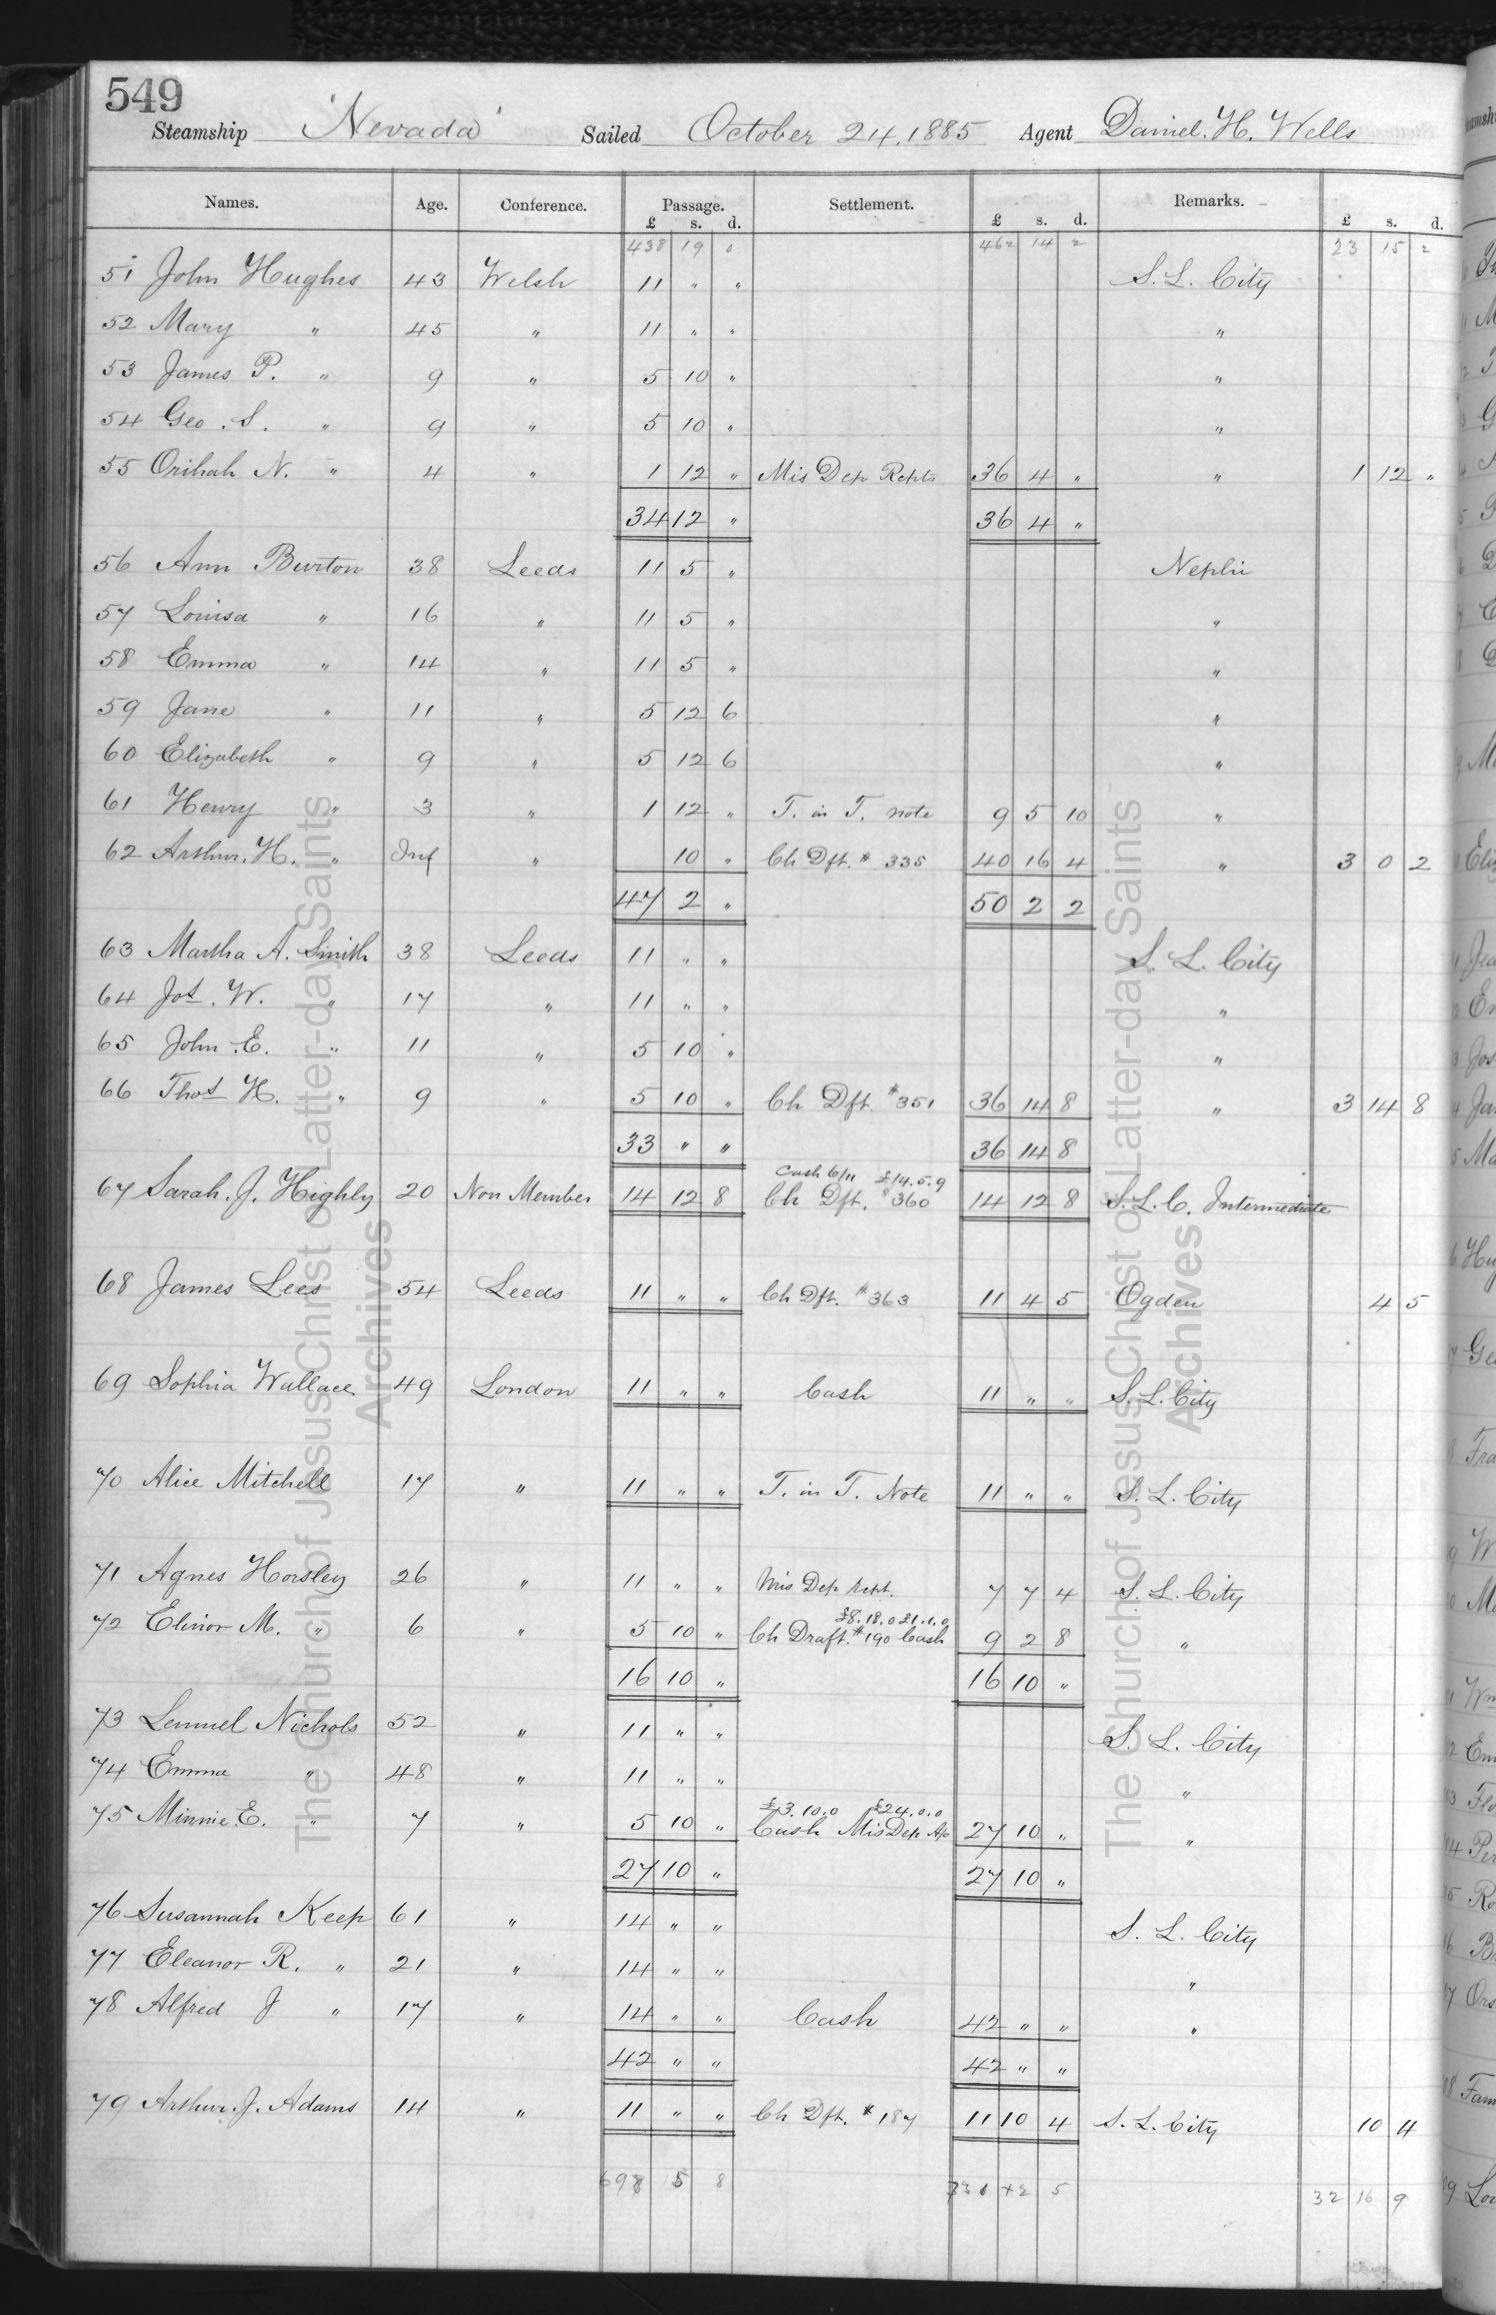 549
Steamship 'Nevada' Sailed October 24, 1885 Agent Daniel. H. Wells
Names. Age. Conference. Passage. Settlement. Remarks.
£ s. d. £ s. d. £ s. d.
438 19 0 462 14 2 23 15 2
51 John Hughes 43 Welsh 11 " " S. L. City
52 Mary " 45 " 11 " " "
53 James P. " 9 " 5 10 " "
54 Geo. S. " 9 " 5 10 " "
55 Orihah N. " 4 " 1 12 " Mis Dep Rcpts 36 4 " " 1 12 "
34 12 " 36 4 "
56 Ann Burton 38 Leeds 11 5 " Nephi
57 Louisa " 16 " 11 5 " "
58 Emma " 14 " 11 5 " "
59 Jane " 11 " 5 12 6 "
60 Elizabeth " 9 " 5 12 6 "
61 Henry " 3 " 1 12 " T. in T. note 9 5 10 "
62 Arthur. H. " Inf " 10 " Ch Dft. # 335 40 16 4 " 3 0 2
47 2 " 50 2 2
63 Martha A. Smith 38 Leeds 11 " " S. L. City
64 Jos. W. " 17 " 11 " " "
65 John E. " 11 " 5 10 " "
66 Thos H. " 9 " 5 10 " Ch Dft. # 351 36 14 8 " 3 14 8
33 " " 36 14 8
Cash 6/11 £14.5.9
67 Sarah. J. Highly 20 Non Member 14 12 8 Ch Dft. # 360 14 12 8 S. L. C. Intermediate
68 James Lees 54 Leeds 11 " " Ch Dft. # 363 11 4 5 Ogden 4 5
69 Sophia Wallace 49 London 11 " " Cash 11 " " S. L. City
70 Alice Mitchell 17 " 11 " " T. in T. Note 11 " " S. L. City
71 Agnes Horsley 26 " 11 " " Mis Dep Rcpt. 7 7 4 S. L. City
£8.18.0 £1.1.0
72 Elinor M. " 6 " 5 10 " Ch Draft. # 190 Cash 9 2 8 "
16 10 " 16 10 "
73 Lemuel Nichols 52 " 11 " " S. L. City
74 Emma " 48 " 11 " " "
£3.10.0 £24.0.0
75 Minnie E. " 7 " 5 10 " Cash Mis Dep A/c 27 10 " "
27 10 " 27 10 "
76 Susannah Keep 61 " 14 " " S. L. City
77 Eleanor R. " 21 " 14 " " "
78 Alfred J " 17 " 14 " " Cash 42 " " "
42 " " 42 " "
79 Arthur. J. Adams 14 " 11 " " Ch Dft. # 187 11 10 4 S. L. City 10 4
698 5 8 5 32 16 9
The Church of Jesus Christ of Latter-day Saints
Archives
The Church of Jesus Christ of Latter-day Saints
Archives